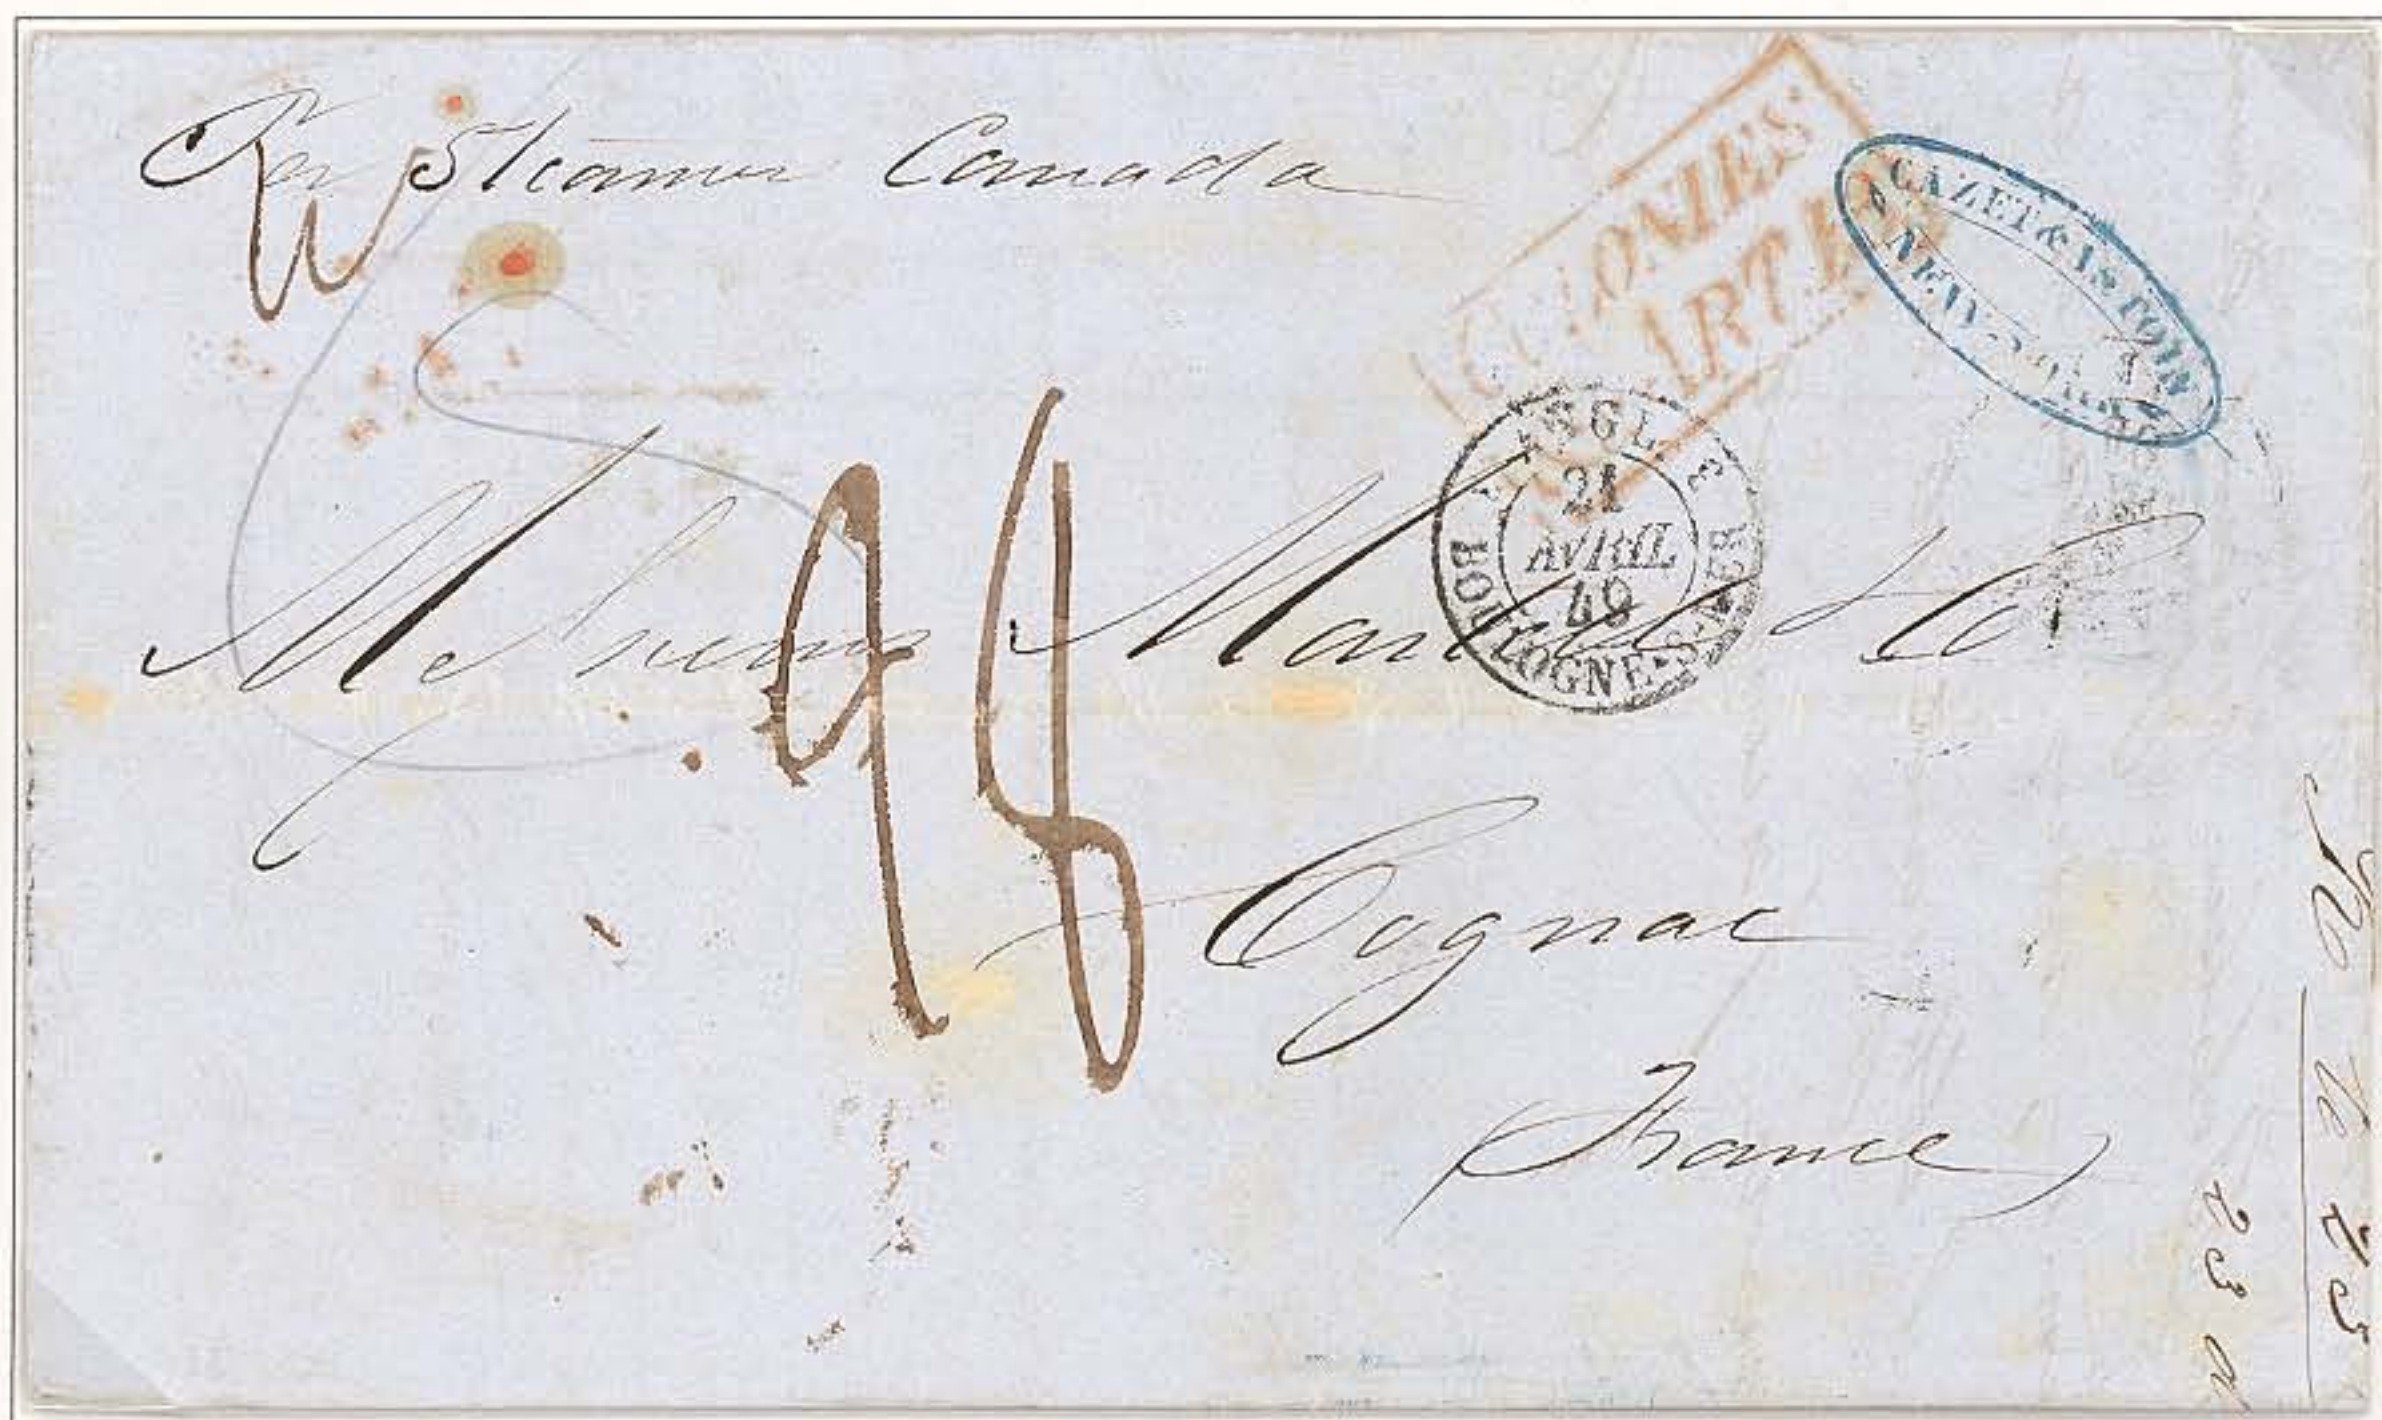 Per Steamer Canada
COLONIES
ART
CAZET & ASTOIN
NEW-YORK
ANGL. 2
21
AVRIL
49
BOULOGNE-S-MER
Martell & Co
Cognac
France
25
23 a